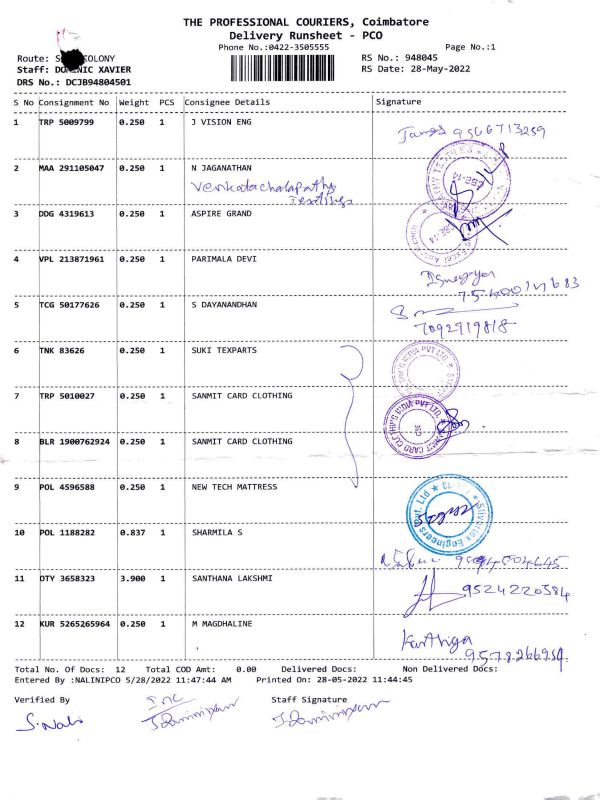 THE PROFESSIONAL COURIERS, Coimbatore
Delivery Runsheet - PCO
Phone No.:0422-3505555
Page No.:1
Route: COLONY
RS No.: 948045
Staff: DOMINIC XAVIER
RS Date: 28-May-2022
DRS No.: DCJB94804501
S No Consignment No Weight PCS Consignee Details Signature
1 TRP 5009799 0.250 1 J VISION ENG
9566713259
2 MAA 291105047 0.250 1 N JAGANATHAN
Venkatachalapathy
Textiles
3 DDG 4319613 0.250 1 ASPIRE GRAND
4 VPL 213871961 0.250 1 PARIMALA DEVI
5 TCG 50177626 0.250 1 S DAYANANDHAN
7092719818
6 TNK 83626 0.250 1 SUKI TEXPARTS
7 TRP 5010027 0.250 1 SANMIT CARD CLOTHING
8 BLR 1900762924 0.250 1 SANMIT CARD CLOTHING
9 POL 4596588 0.250 1 NEW TECH MATTRESS
10 POL 1188282 0.837 1 SHARMILA S
11 OTY 3658323 3.900 1 SANTHANA LAKSHMI
9524220584
12 KUR 5265265964 0.250 1 M MAGDHALINE
Karthiga
9578266934
Total No. Of Docs: 12 Total COD Amt: 0.00 Delivered Docs: Non Delivered Docs:
Entered By :NALINIPCO 5/28/2022 11:47:44 AM Printed On: 28-05-2022 11:44:45
Verified By
Staff Signature